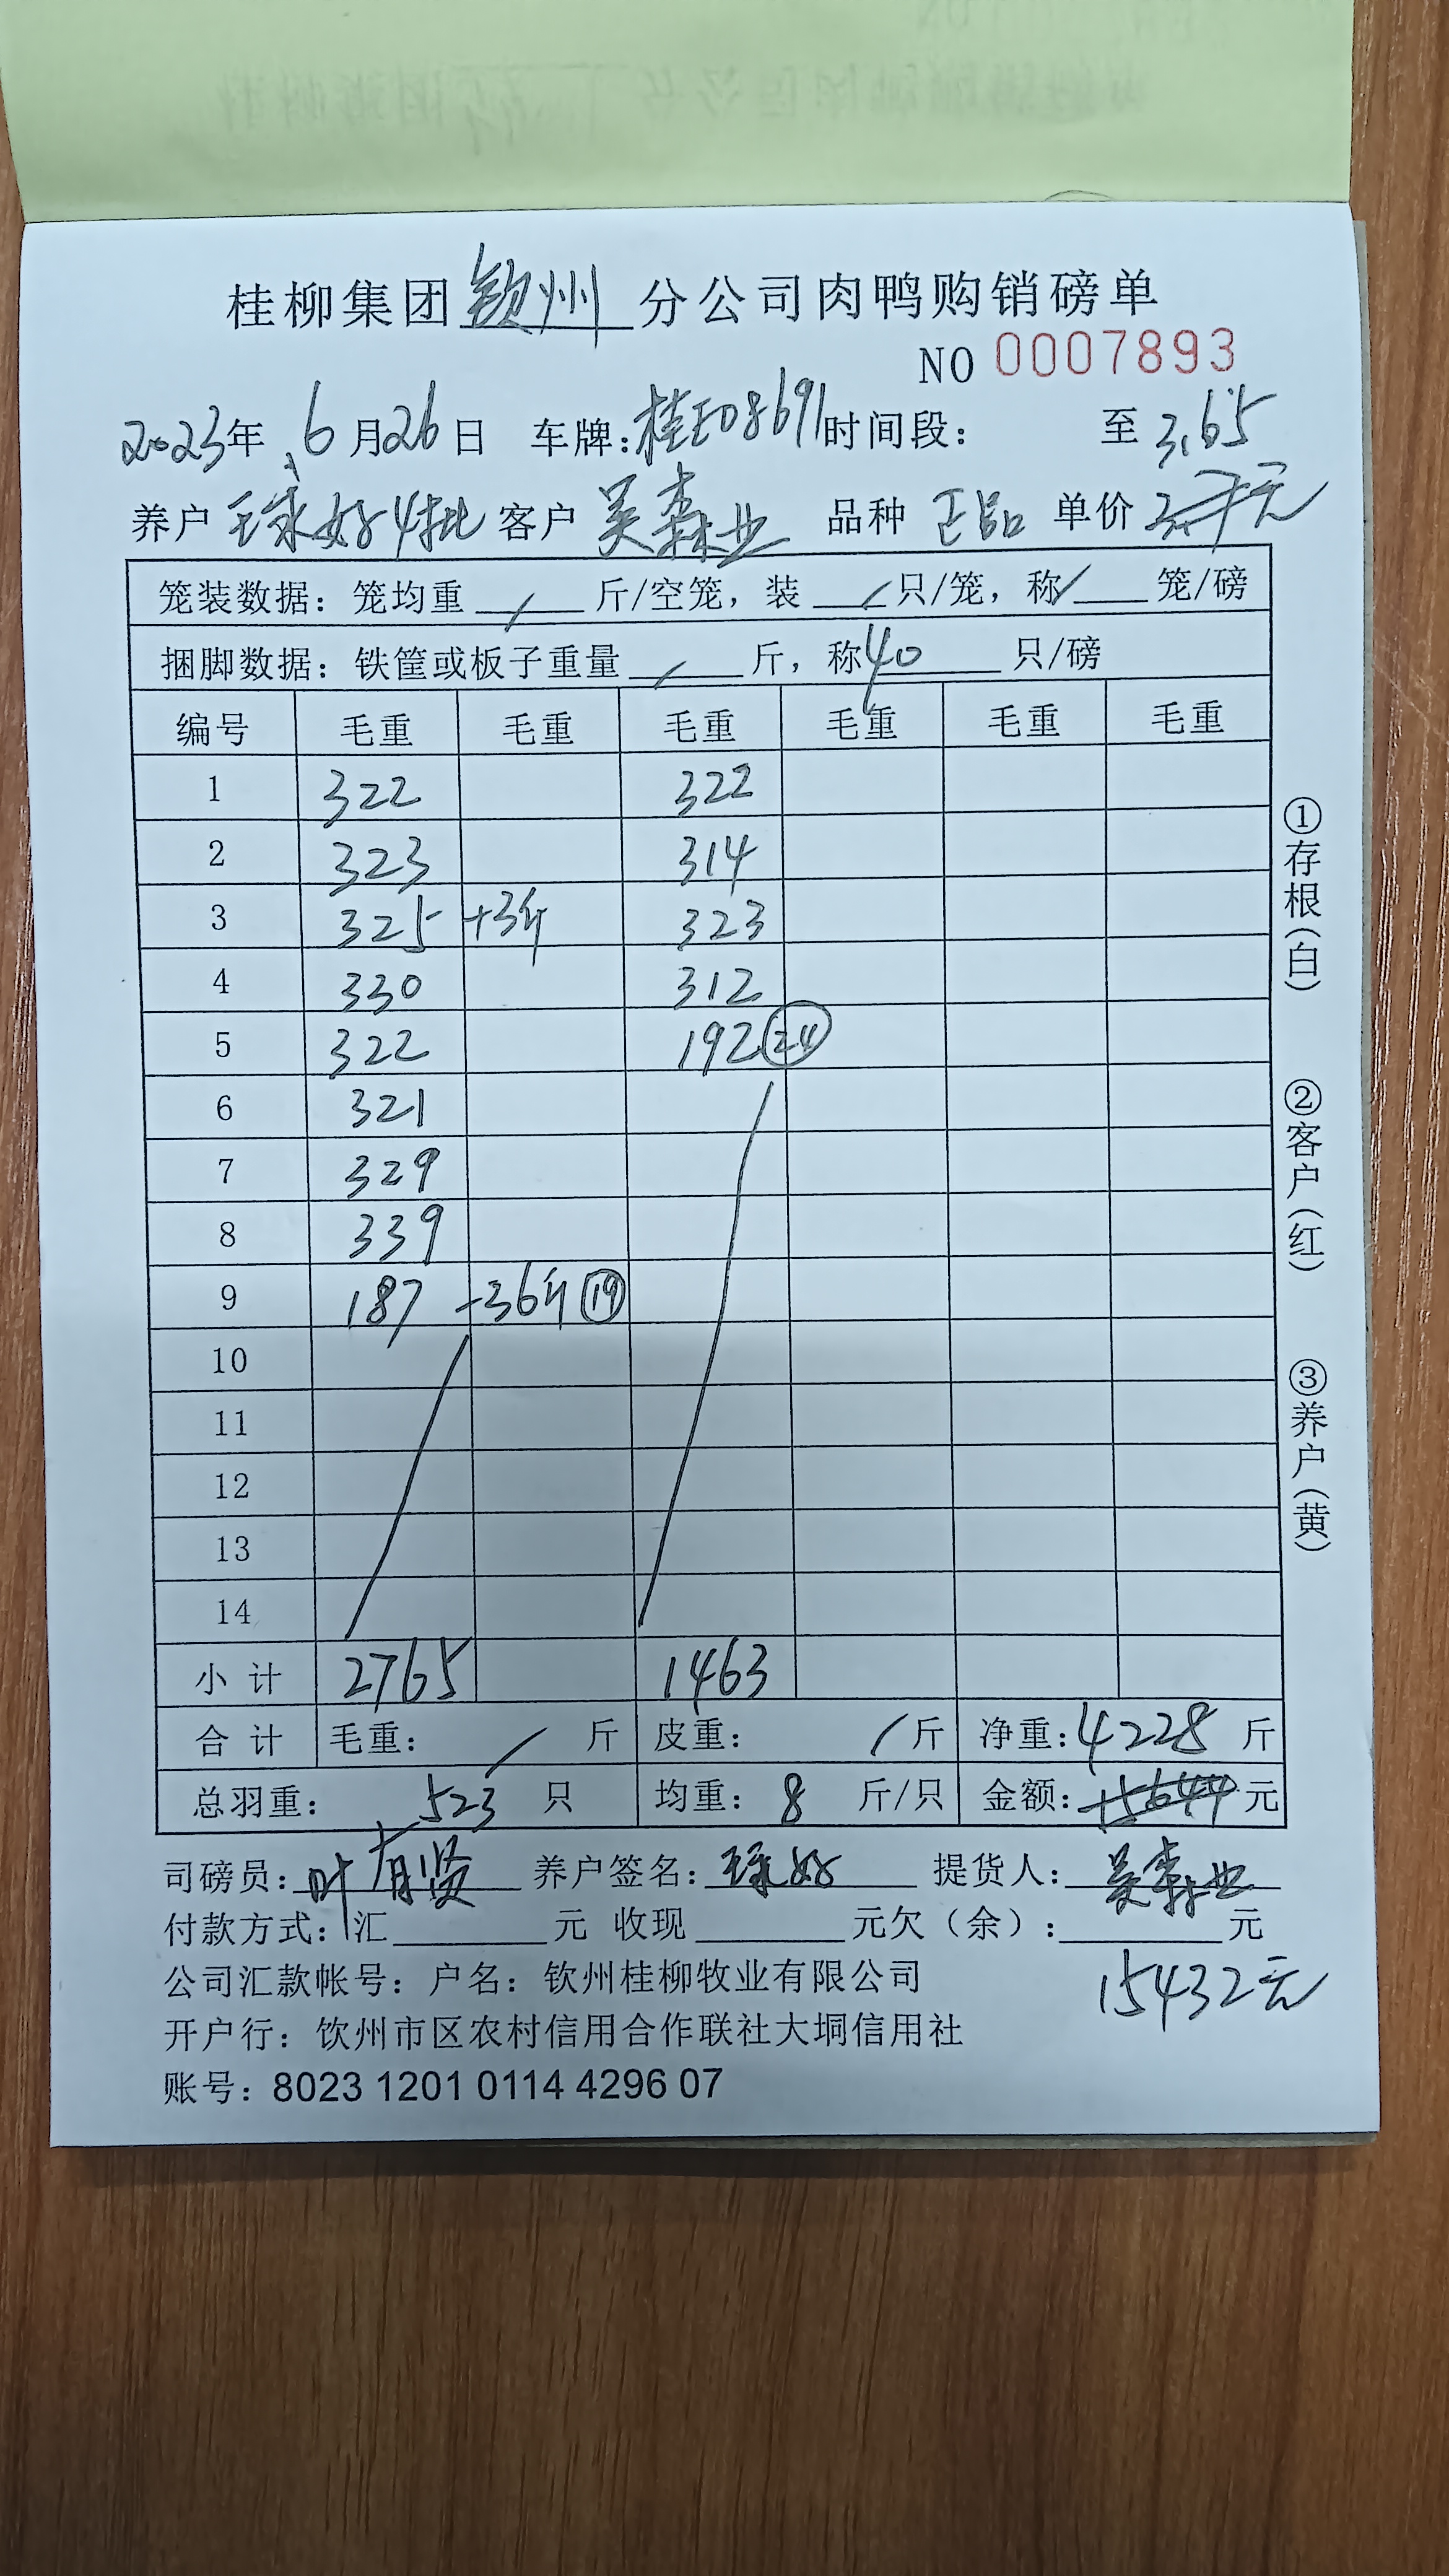 桂柳集团钦州分公司肉鸭购销磅单
NO 0007893
2023年6月26日 车牌:桂E08691时间段: 至 3.65
养户 王家好4批 客户 吴森业 品种 正品 单价 元
笼装数据: 笼均重 / 斤/空笼, 装 / 只/笼, 称/ 笼/磅
捆脚数据: 铁筐或板子重量 / 斤, 称40 只/磅
编号 毛重 毛重 毛重 毛重 毛重 毛重
1 322 322
2 323 314
3 325 +3斤 323
4 330 312
5 322 192 24
6 321
7 329
8 339
9 187 -36斤 19
10
11
12
13
14
小计 2765 1463
合计 毛重: / 斤 皮重: / 斤 净重:4228 斤
总羽重: 523 只 均重: 8 斤/只 金额:15644元
司磅员: 叶有贤 养户签名: 提货人: 吴森业
付款方式: 汇 元 收现 元欠(余): 元
公司汇款帐号: 户名: 钦州桂柳牧业有限公司
15432元
开户行: 饮州市区农村信用合作联社大垌信用社
账号: 8023 1201 0114 4296 07
①存根(白)
②客户(红)
③养户(黄)